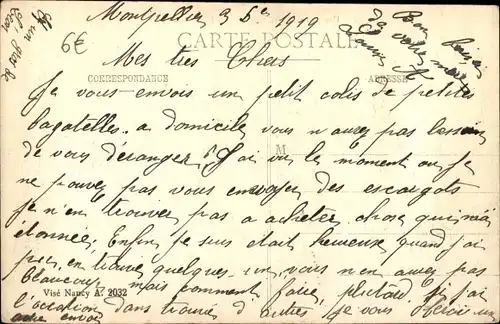 Montpellier 3 Dbe 1919
CARTE POSTALE
6€
Mes tres Chers
CORRESPONDANCE
ADRESSE
Bon baiser
de votre mère
Je vous envois un petit colis de petites
bagatelles a domicile vous n aurez pas besoin
de vous déranger, J'ai vu le moment ou je
M
ne pouvez pas vous envoyer des escargots
je n'en trouver pas a acheter chose qui m'a
étonnée, Enfin je suis était heureuse quand j'ai
peu en trouver quelques-un, vous n'en aurez pas
beaucoup, mais comment faire, plutard si j'ai
Visé Nancy A. 2032
l'occation dans trouver d'autres je vous ferais un
autre envoi